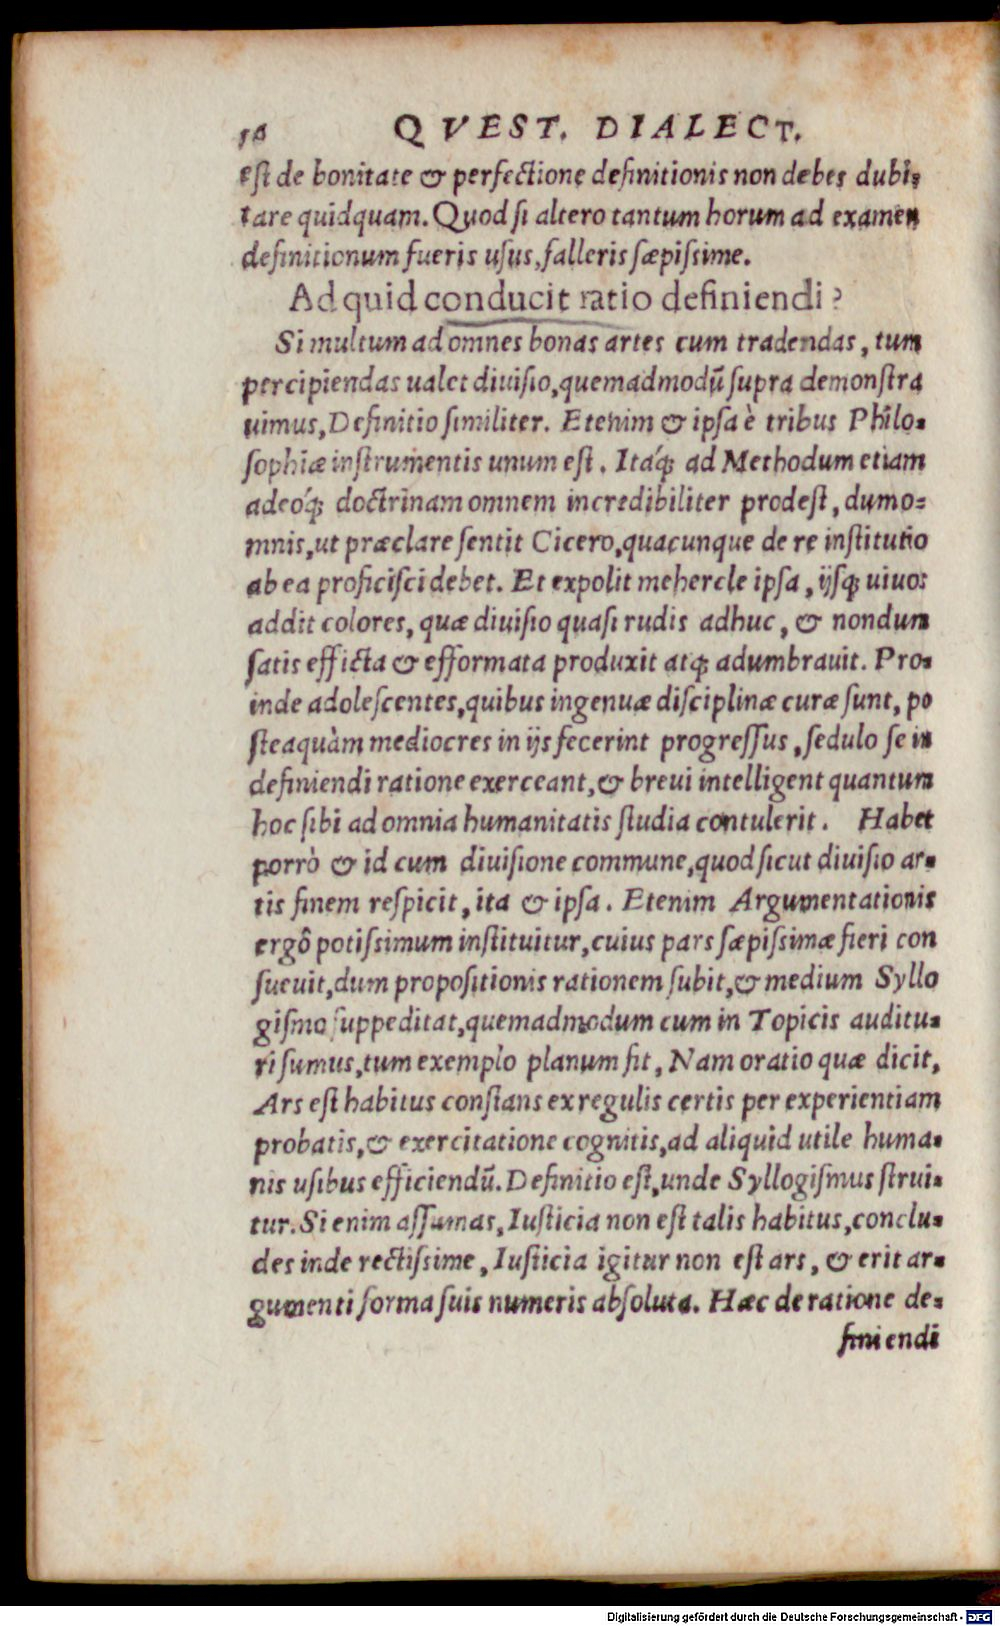 56 QVEST. DIALECT.
est de bonitate & perfectione definitionis non debes dubi-
tare quidquam. Quod si altero tantum horum ad examen
definitionum fueris usus, falleris sæpissime.
Ad quid conducit ratio definiendi?
Si multum ad omnes bonas artes cum tradendas, tum
percipiendas ualet diuisio, quemadmodũ supra demonstra
uimus, Definitio similiter. Etenim & ipsa è tribus Philo-
sophiæ instrumentis unum est. Itáq; ad Methodum etiam
adeóq; doctrinam omnem incredibiliter prodest, dum o-
mnis, ut præclare sentit Cicero, quacunque de re institutio
ab ea proficisci debet. Et expolit mehercle ipsa, ijsq; uiuos
addit colores, quæ diuisio quasi rudis adhuc, & nondum
satis efficta & efformata produxit atq; adumbrauit. Pro-
inde adolescentes, quibus ingenuæ disciplinæ curæ sunt, po
steaquàm mediocres in ijs fecerint progressus, sedulo se in
definiendi ratione exerceant, & breui intelligent quantum
hoc sibi ad omnia humanitatis studia contulerit. Habet
porrò & id cum diuisione commune, quod sicut diuisio ar-
tis finem respicit, ita & ipsa. Etenim Argumentationis
ergô potissimum instituitur, cuius pars sæpissimæ fieri con
sueuit, dum propositionis rationem subit, & medium Syllo
gismo suppeditat, quemadmodum cum in Topicis auditu-
ri sumus, tum exemplo planum fit, Nam oratio quæ dicit,
Ars est habitus constans ex regulis certis per experientiam
probatis, & exercitatione cognitis, ad aliquid utile huma-
nis usibus efficiendũ. Definitio est, unde Syllogismus strui-
tur. Si enim assumas, Iusticia non est talis habitus, conclu-
des inde rectissime, Iusticia igitur non est ars, & erit ar-
gumenti forma suis numeris absoluta. Hæc de ratione de-
finiendi
Digitalisierung gefördert durch die Deutsche Forschungsgemeinschaft - DFG